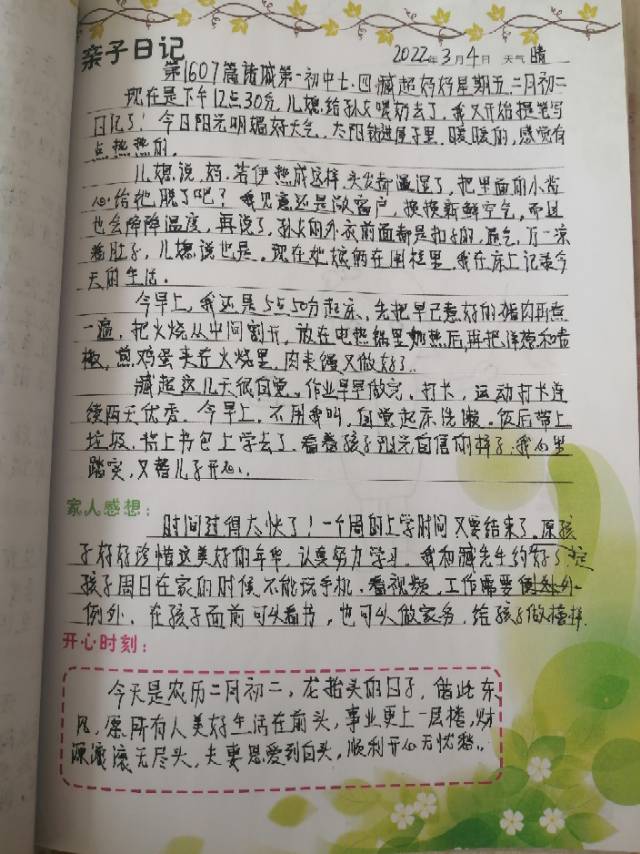 亲子日记 2022年3月4日 天气 晴
第1607篇诸城第一初中七.四.臧超妈妈星期五二月初二
现在是下午12点30分,儿媳给孙女喂奶去了,我又开始提笔写
日记了!今日阳光明媚好天气,太阳钻进屋子里,暖暖的,感觉有
点热热的。
儿媳说,妈,若伊热成这样,头发都温湿了,把里面的小背
心给她脱了吧?我见意还是敞窗户,换换新鲜空气,而且
也会降降温度,再说了,孙女的外衣前面都是扣子的,通气,万一凉
着肚子,儿媳说也是。现在她躺的在围栏里,我在床上记录今
天的生活。
今早上,我还是5点50分起床,先把早已煮好的猪肉再煮
一遍,把火烧从中间割开,放在电热锅里加热后,再把洋葱和青
椒,煎鸡蛋夹在火烧里,肉夹馍又做好了。
臧超这几天很自觉。作业早早做完,打卡,运动打卡连
续两天优秀。今早上,不用我叫,自觉起床洗漱。饭后带上
垃圾,背上书包上学去了,看着孩子阳光自信的样子,我心里
踏实,又替儿子开心。
家人感想:
时间过得太快了!一个周的上学时间又要结束了,愿孩
子好好珍惜这美好的年华,认真努力学习。我和臧先生约好了,定
孩子周日在家的时候不能玩手机,看视频,工作需要
例外,在孩子面前可以看书,也可以做家务,给孩子做榜样.
开心时刻:
今天是农历二月初二,龙抬头的日子,借此东
风,愿所有人美好生活在前头,事业更上一层楼,财
源滚滚无尽头,夫妻恩爱到白头,顺利开心无忧愁。